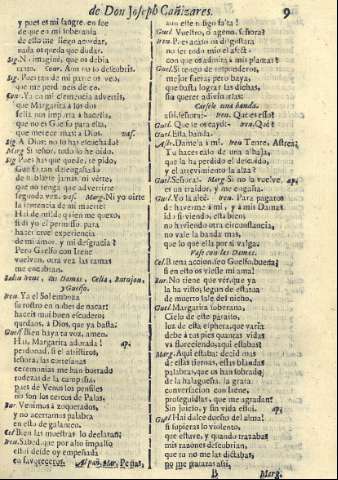 de Don Joseph Cañizares. 9
y pues es mi sangre, en fee
de que es mi soberania
de esta me llego acordar,
nada os queda que dudar.
no os perdi neis de eso.
Cov. Yo en mi clemencia advertis,
que Margarita à los dos
feliz nos importa hacerla,
que no es Guelfo para ella,
que merece mas: à Dios. vas.
Sig. A Dios: no lo has escuchado?
Marg. Si señor, todo lo he oìdo.
Sig. Pues has que quede, te pido,
Guelfo tan desengañado
de hablarte jamàs, ni vèrte,
que no tenga que advertirte
segunda vez. vas. Marg. Ni yo oirte
la sentencia de mi muerte:
Hai de mi! de quien me quexo,
si di yo el permisso para
hacer cruel experiencia
de mi amor, y mi desgracia?
Pero Guelfo con Irene
vuelven, otra vez las ramas
me encubran.
Salen Irene, las Damas, Celia, Barajon,
y Guelfo.
Iren. Ya el Sol emboza
su rostro en nubes de nacar:
haceis mui buen escudero;
quedaos, à Dios, que ya basta.
Guelf. Bien haya tu voz, amen.
Hai, Margarita adorada! ap.
perdonad, si el assistiros,
señora, las cortesanas
ceremonias me han borrado
rudezas de la campaña,
pues de Venus los pensiles
no son los cercos de Palas.
Bar. Venimos à zoquerados,
y no acertamos palabra
en esto de galanteo.
Cel. Bien las muestras lo declaran.
Iren. Sabed, que por alto impulso
estoi desde oy empeñada
en favoreceros. Al paño, Mar. Penas,
aun este riesgo falta!
Guel. Vuestro, ò ageno, señora?
Iren. Pues acaso os disgustàra
no ser todo mio el afecto
con que os admita à mis plantas?
Guel. Si tengo de responderos,
mejor fuera; pero baya,
que basta lograr las dichas,
sin querer adivinarlas:
Caesele una banda.
assi, señora:- Iren. Que es esso?
Guel. Que se os cayò:- Iren. Què?
Guel. Esta banda.
Ast. Dame la à mi. Iren Tente, Astrea;
Tu haces caso de una alhaja,
que la ha perdido el descuido,
y el atrevimiento la alza?
Guel. Señora:- Marg. Si no la vuelve, ap.
es un traidor, y me engaña.
Guel. Yo la alcè. Iren. Para pagaros
de haverme à mi, y à mis Damas
ido sirviendo, esta bien;
no haviendo otra circunstancia,
no vale la banda mas,
que lo que ella por sì valga.
Vase con las Damas.
Cel. Buena accion, seo Guelfo, buena;
si en esto os viesse mi ama!
Bar. No tiene que vèr, que ya
la ha visto, segun de estatua
de muerto sale del nicho.
Guel. Margarita soberana,
Cielo de este paraìso,
luz de esta esphera, que varia
debe à tus pies quantas vidas
và floreciendo, aqui estabas?
Marg. Aqui estaba: decid mas
de essas tiernas, essas blandas
palabras, que os han sobrado
de la halagueña, la grata
conversacion con Irene;
proseguidlas, que me agradan:
Sin juicio, y sin vida estoi. ap.
Guelf. Hai dulce dueño del alma!
si supieras lo violento,
que estuve, y quando trataba
mis razones descubrir,
que tu no me las dictabas,
no me mataras assi,
B
Marg.